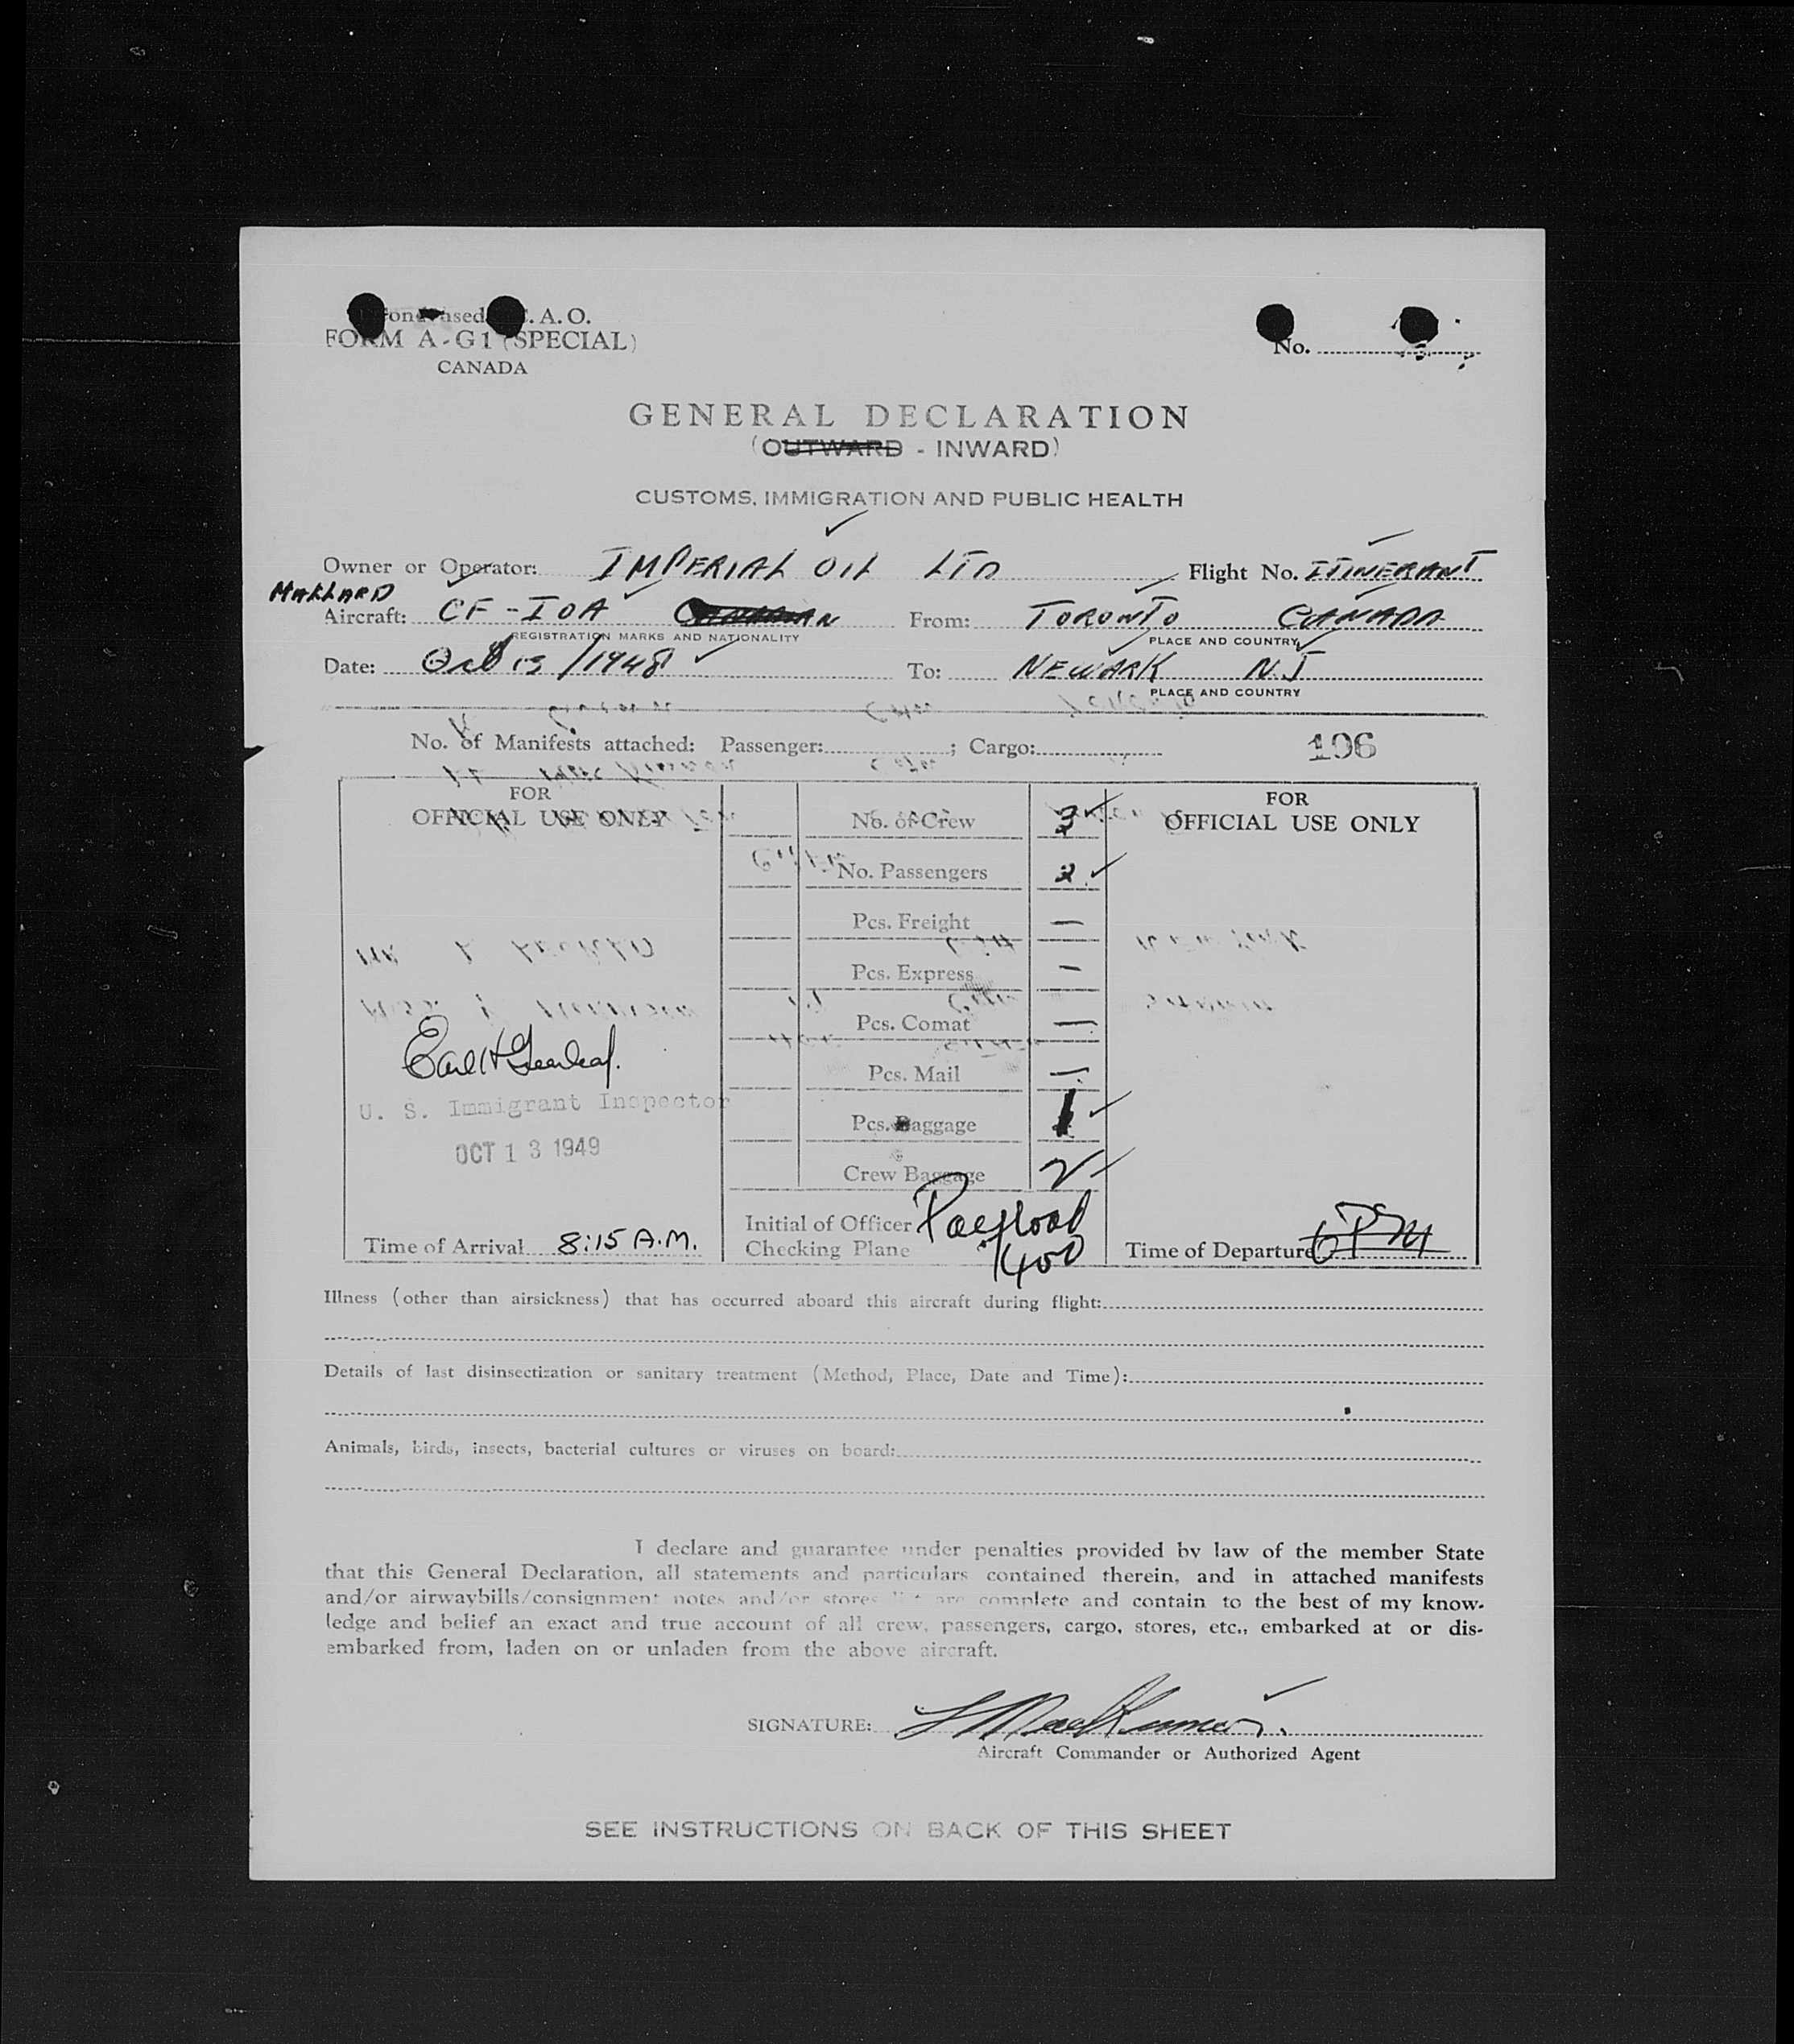 FORM A-G1 (SPECIAL)
CANADA
No.
GENERAL DECLARATION
(OUTWARD - INWARD)
CUSTOMS, IMMIGRATION AND PUBLIC HEALTH
Owner or Operator: IMPERIAL OIL LTD Flight No. ITINERANT
MALLARD
Aircraft: CF-IOA From: TORONTO CANADA
REGISTRATION MARKS AND NATIONALITY PLACE AND COUNTRY
Date: Oct 13/1948 To: NEWARK N.J
PLACE AND COUNTRY
No. of Manifests attached: Passenger: ; Cargo: 106
FOR OFFICIAL USE ONLY
No. of Crew 3
No. Passengers 2
Pcs. Freight —
Pcs. Express —
Pcs. Comat —
Pcs. Mail —
Pcs. Baggage 1
Crew Baggage 2
FOR OFFICIAL USE ONLY
U. S. Immigrant Inspector
OCT 13 1949
Time of Arrival 8:15 A.M.
Initial of Officer
Checking Plane 1400
Time of Departure 6 PM
Illness (other than airsickness) that has occurred aboard this aircraft during flight:
Details of last disinsectization or sanitary treatment (Method, Place, Date and Time):
Animals, birds, insects, bacterial cultures or viruses on board:
I declare and guarantee under penalties provided by law of the member State
that this General Declaration, all statements and particulars contained therein, and in attached manifests
and/or airwaybills/consignment notes and/or stores list are complete and contain to the best of my know-
ledge and belief an exact and true account of all crew, passengers, cargo, stores, etc., embarked at or dis-
embarked from, laden on or unladen from the above aircraft.
SIGNATURE:
Aircraft Commander or Authorized Agent
SEE INSTRUCTIONS ON BACK OF THIS SHEET